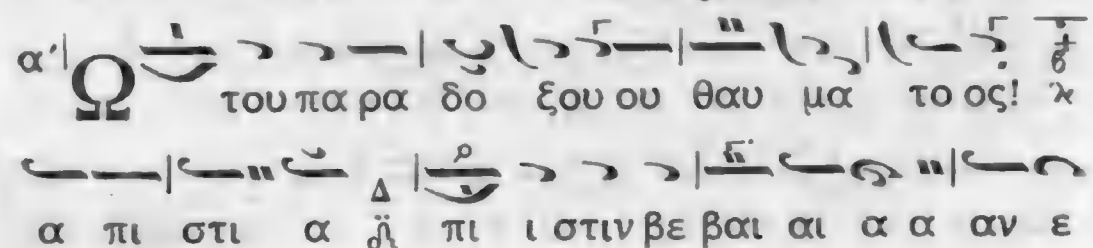 α' Ω του πα ρα δο ξου ου θαυ μα το ος!
α πι στι α Δ πι ι στιν βε βαι αι α α αν ε